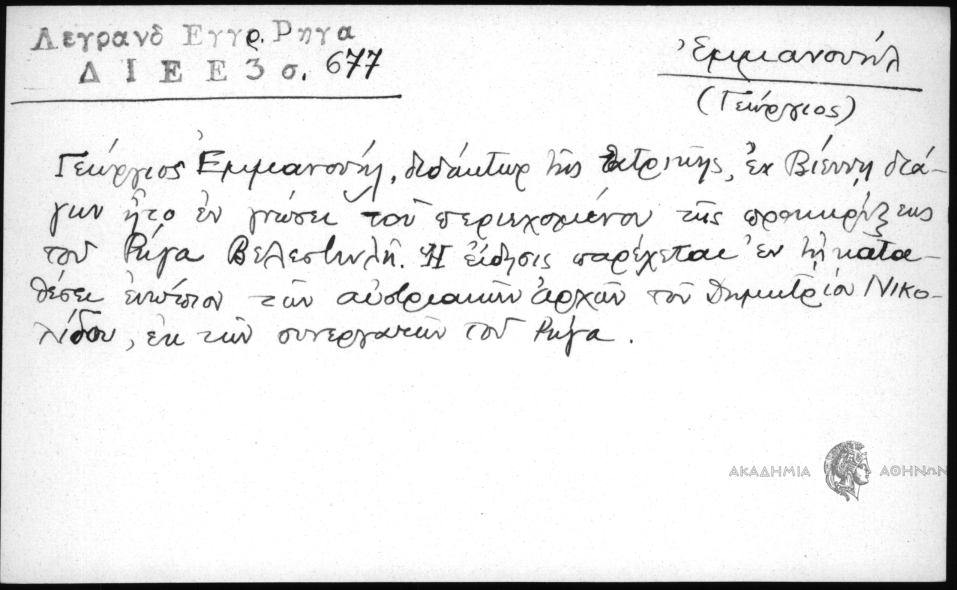 Λεγρανδ Εγγρ. Ρηγα
Δ Ι Ε Ε 3 σ. 677
Ἐμμανουήλ
(Γεώργιος)
Γεώργιος Ἐμμανουήλ, διδάκτωρ τῆς ἰατρικῆς, ἐν Βιέννῃ διά-
γων ἦτο ἐν γνώσει τοῦ περιεχομένου τῆς προκηρύξεως
τοῦ Ρήγα Βελεστινλῆ. Ἡ εἴδησις παρέχεται ἐν τῇ κατα-
θέσει ἐνώπιον τῶν αὐστριακῶν ἀρχῶν τοῦ Δημητρίου Νικο-
λίδου, ἐκ τῶν συνεργατῶν τοῦ Ρήγα.
ΑΚΑΔΗΜΙΑ ΑΘΗΝΩΝ